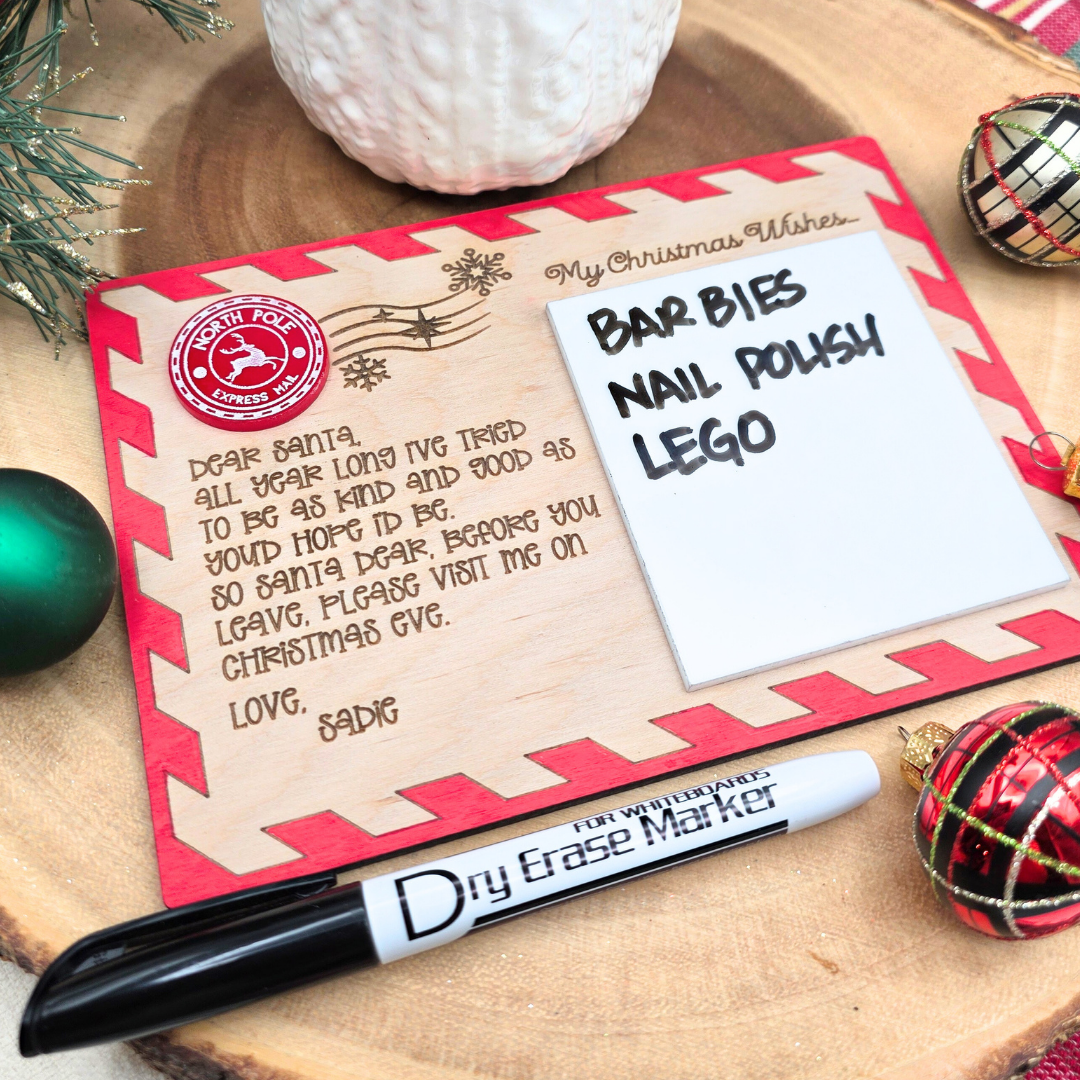 NORTH POLE
EXPRESS MAIL
My Christmas Wishes...
BARBIES
NAIL POLISH
LEGO
DEAR SANTA,
ALL YEAR LONG I'VE TRIED
TO BE AS KIND AND GOOD AS
YOU'D HOPE I'D BE.
SO SANTA DEAR, BEFORE YOU
LEAVE, PLEASE VISIT ME ON
CHRISTMAS EVE.
LOVE,
SADIE
FOR WHITEBOARDS
Dry Erase Marker